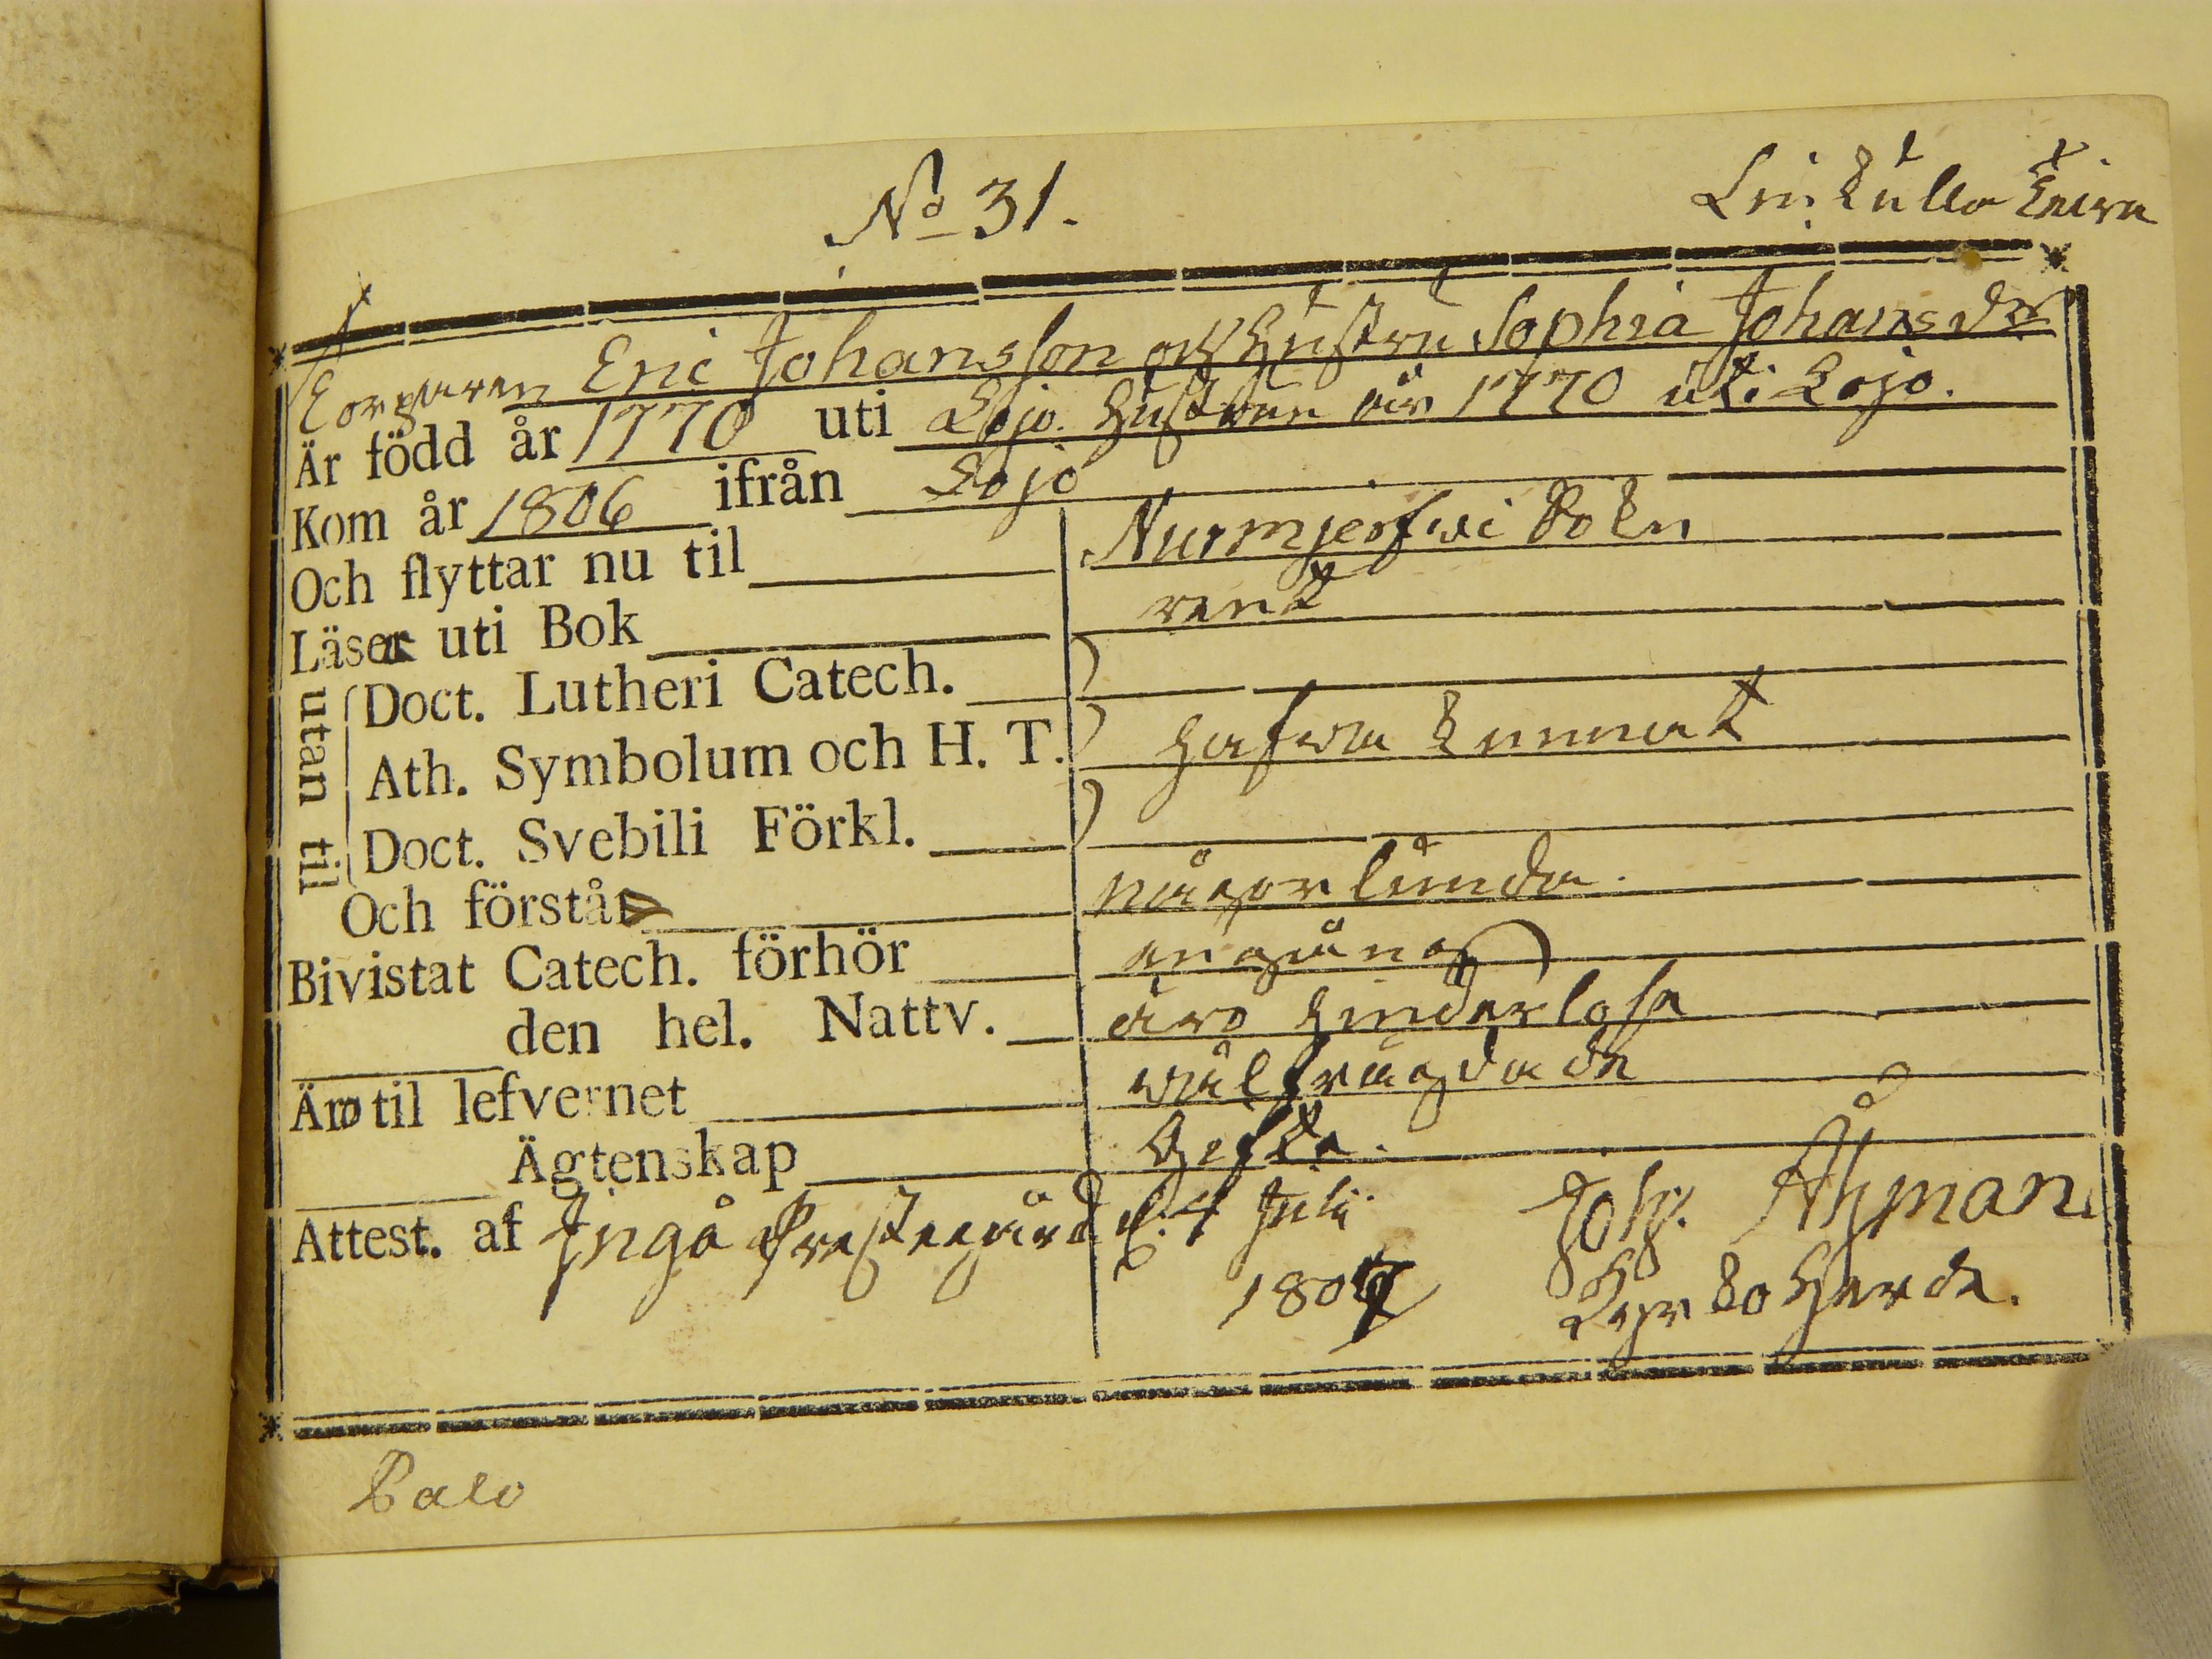 No 31.
Torparen Eric Johansson och Hustru Sophia Johansdr
Är född år 1770 uti Lojo. Hustrun år 1770 uti Lojo.
Kom år 1806 ifrån Lojo
Och flyttar nu til Nurmjerfwi Sokn
Läsa uti Bok rent
utan til
Doct. Lutheri Catech.
Ath. Symbolum och H. T. hafwa lemnat
Doct. Svebili Förkl.
Och förstå någorlunda.
Bivistat Catech. förhör
den hel. Nattv. äro hinderlösa
Äro til lefvernet wälfrägdade
Ägtenskap Gifta.
Attest. af Ingå Prestegård d. 4 Julii 1807
Joh. Åhman
Kyrkoherde.
Palo